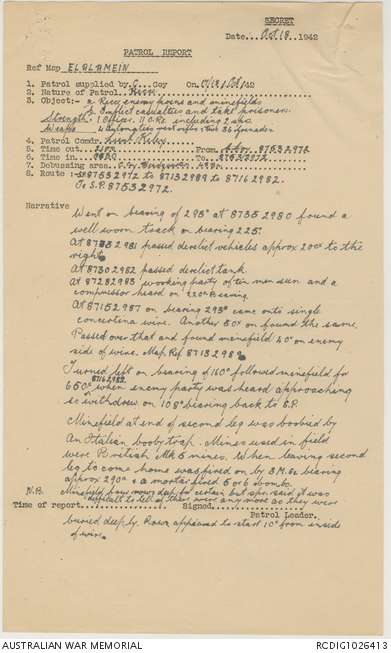 SECRET
Date Oct 18. 1942
PATROL REPORT
Ref Map EL ALAMEIN
1. Patrol supplied by C Coy On 17/18/Oct/42
2. Nature of Patrol Recce
3. Object:- a Recce enemy posns and minefields
b Inflict casualties and take prisoners.
Strength: 1 Officer. 11 O.Rs including 2 sprs
4. Patrol Comdr. Lieut
5. Time out From 87532972
6. Time in 0230 To 87532972
7. Debussing area.
8. Route :- 87532972 to 87132989 to 87162982.
To S.P. 87532972.
Narrative
Went on bearing of 293° at 87352980 found a
well worn track on bearing 225°.
At 87332981 passed derelict vehicles approx 200x to the
right.
At 87302982 passed derelict tank.
At 87282983 working party of ten men seen and a
compressor heard on bearing.
At 87152987 on bearing 293° came onto single
concertina wire. Another 50x on found the same.
Passed over that and found minefield 20x on enemy
side of wire. Map Ref 87132989
Turned left on bearing of 160° followed minefield for
650x 87162982 when enemy party was heard approaching
so withdrew on 108° bearing back to S.P.
Minefield at end of second leg was boobied by
An Italian booby trap. Mines used in field
were British Mk 5 mines. When leaving second
leg to come home was fired on by 3 M.Gs bearing
approx 290° & a mortar fired 5 or 6 bombs.
N.B. Minefield four rows deep for certain but spr. said it was
difficult to tell if there were any more as they were
Time of report Signed
Patrol Leader.
buried deeply. Rows appeared to start 10x from inside
of wire.
AUSTRALIAN WAR MEMORIAL
RCDIG1026413